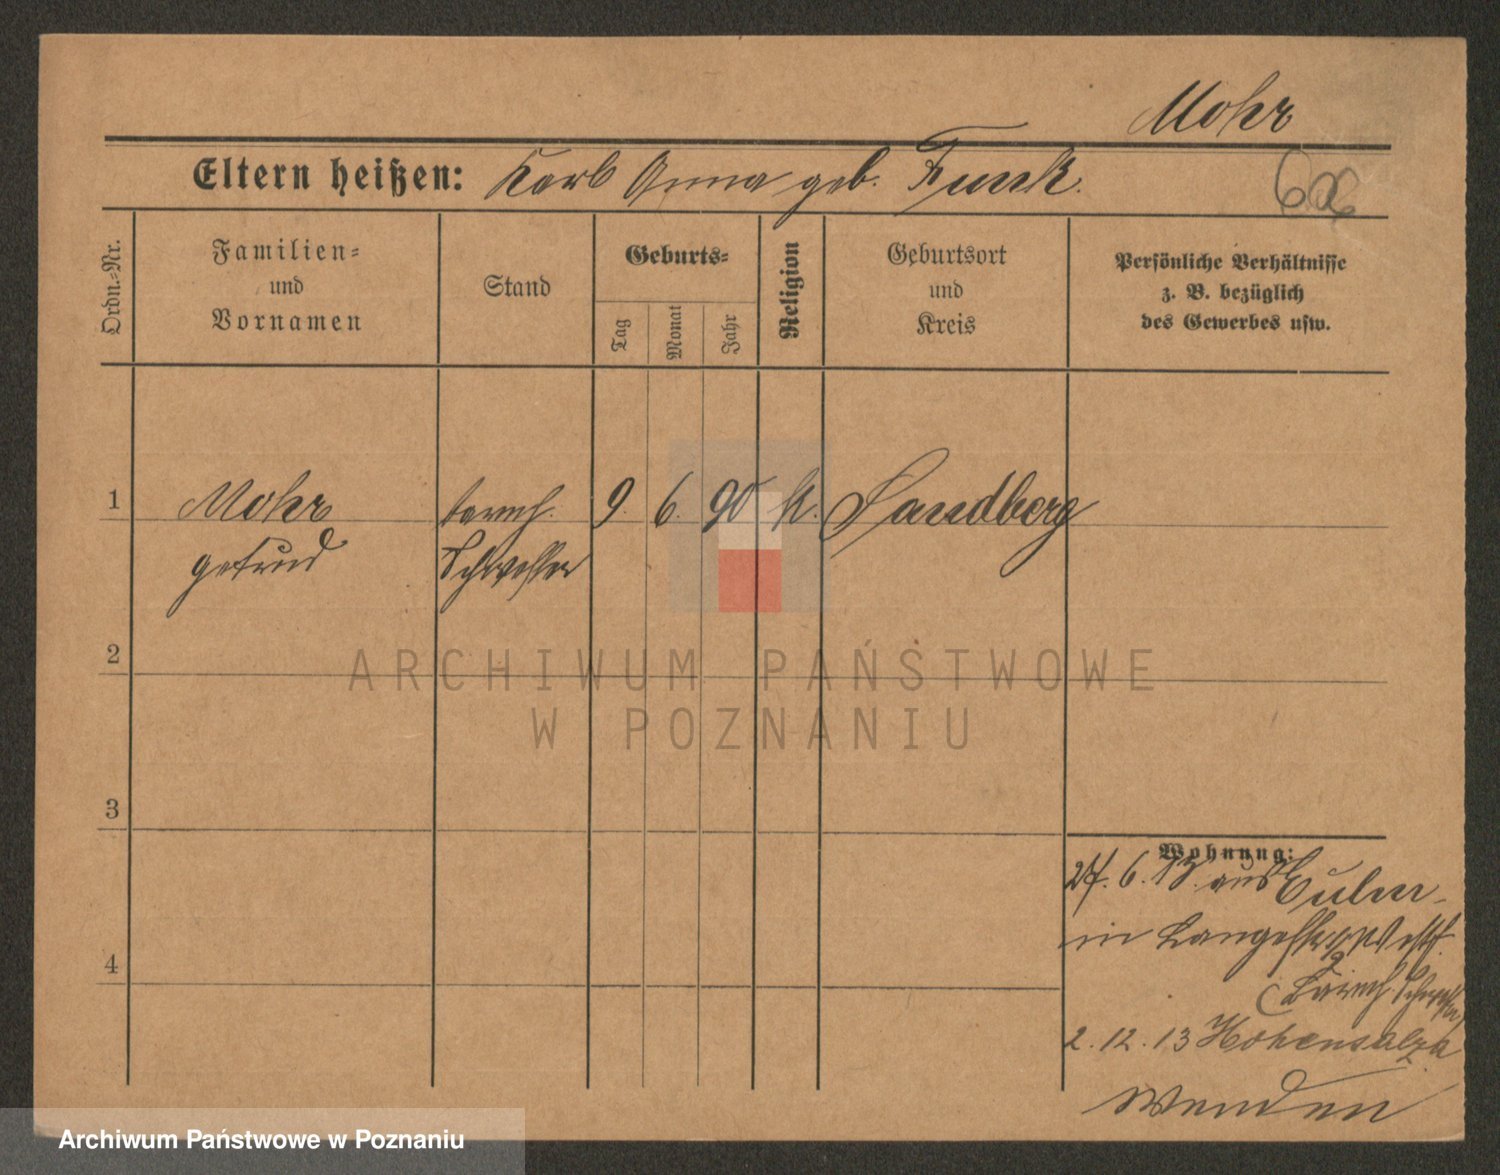 Mohr
Eltern heißen: Karl Anna geb. Funk.
Ordn.-Nr.
Familien-
und
Vornamen
Stand
Geburts-
Tag
Monat
Jahr
Religion
Geburtsort
und
Kreis
Persönliche Verhältnisse
z. B. bezüglich
des Gewerbes usw.
1 Mohr barmh. 9. 6. 90 k. Sandberg
Schwester
2
ARCHIWUM PAŃSTWOWE
W POZNANIU
3
Wohnung:
27. 6. 13. aus Culm
in Langestr 1/2
4
barmh. Schwester
2. 12. 13 Hohensalza
wenden
Archiwum Państwowe w Poznaniu